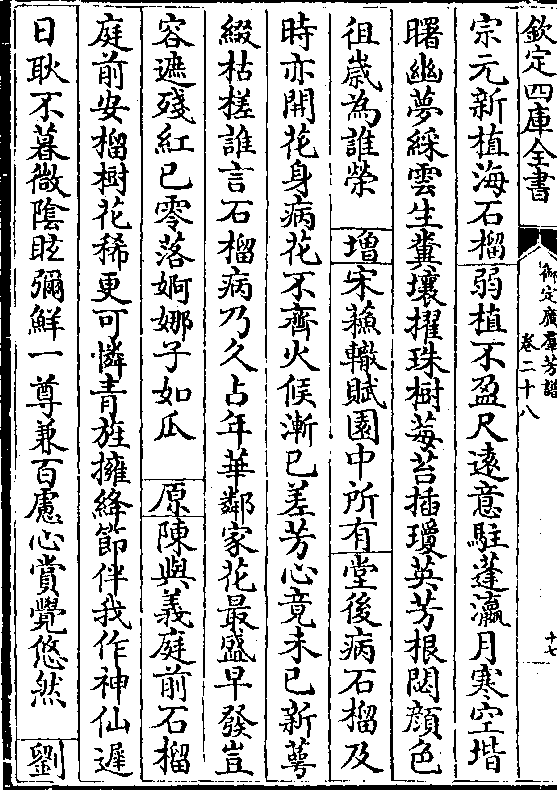 欽定四庫全書
御定廣羣芳譜
卷二十八
十七
宗元新植海石榴弱植不盈尺逺意駐蓬瀛月寒空堦
曙幽夢綵雲生糞壤擢珠樹莓苔插瓊英芳根閟顔色
徂嵗為誰榮 增宋蘓轍賦園中所有堂後病石榴及
時亦開花身病花不齊火候漸已差芳心竟未已新萼
綴枯槎誰言石榴病乃久占年華鄰家花最盛早發豈
容遮殘紅已零落婀娜子如瓜 原陳與義庭前石榴
庭前安榴樹花稀更可憐青旌擁絳節伴我作神仙遲
日耿不暮微陰眩彌鮮一尊兼百慮心賞覺悠然 劉